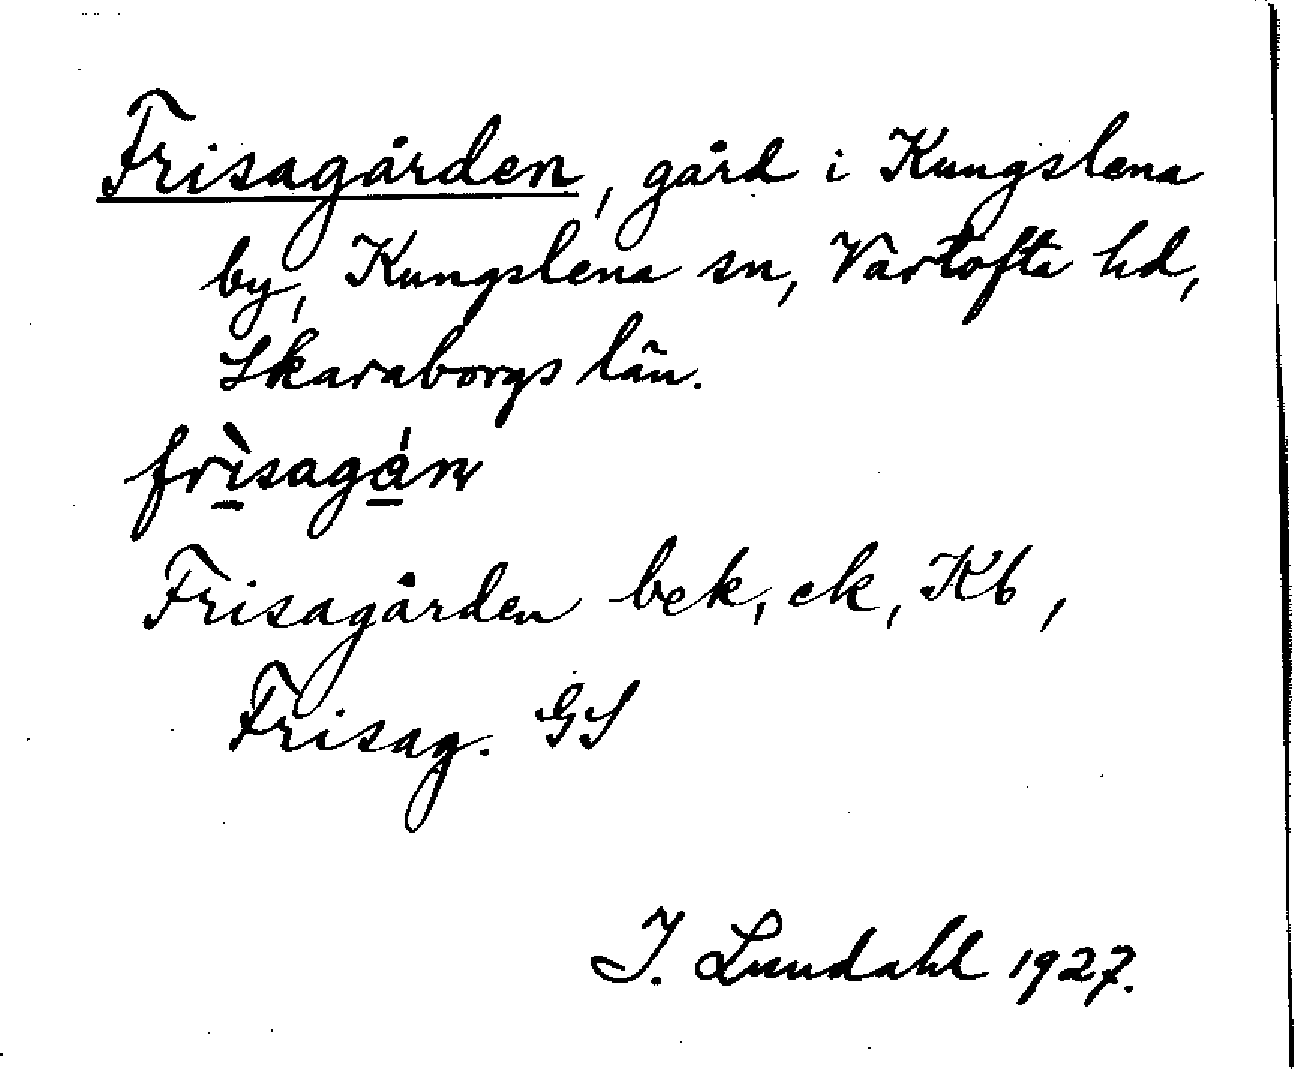 Frisagården, gård i Kungslena
by, Kungslena sn, Vartofta hd,
Skaraborgs län.
frìsagán
Frisagården bek, ek, Kb,
Frisag. GS
I. Lundahl 1927.